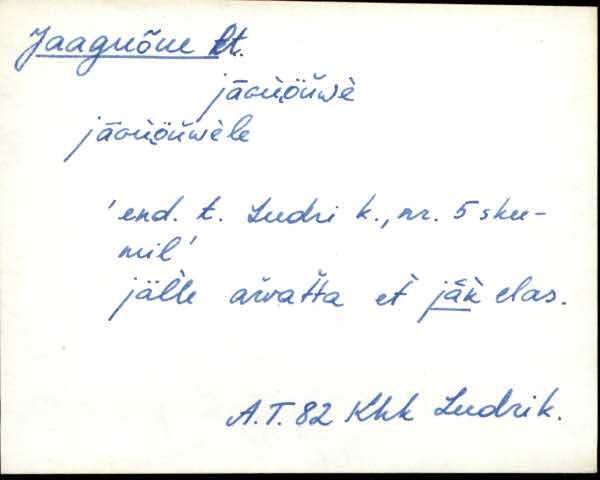 Jaaguõue t.
jāɢùöùwè
jāɢùöùwèle
'end. t. Ludri k., nr. 5 sku-
mil'
jälle arvatta et jāk elas.
A.T. 82 Khk Ludrik.